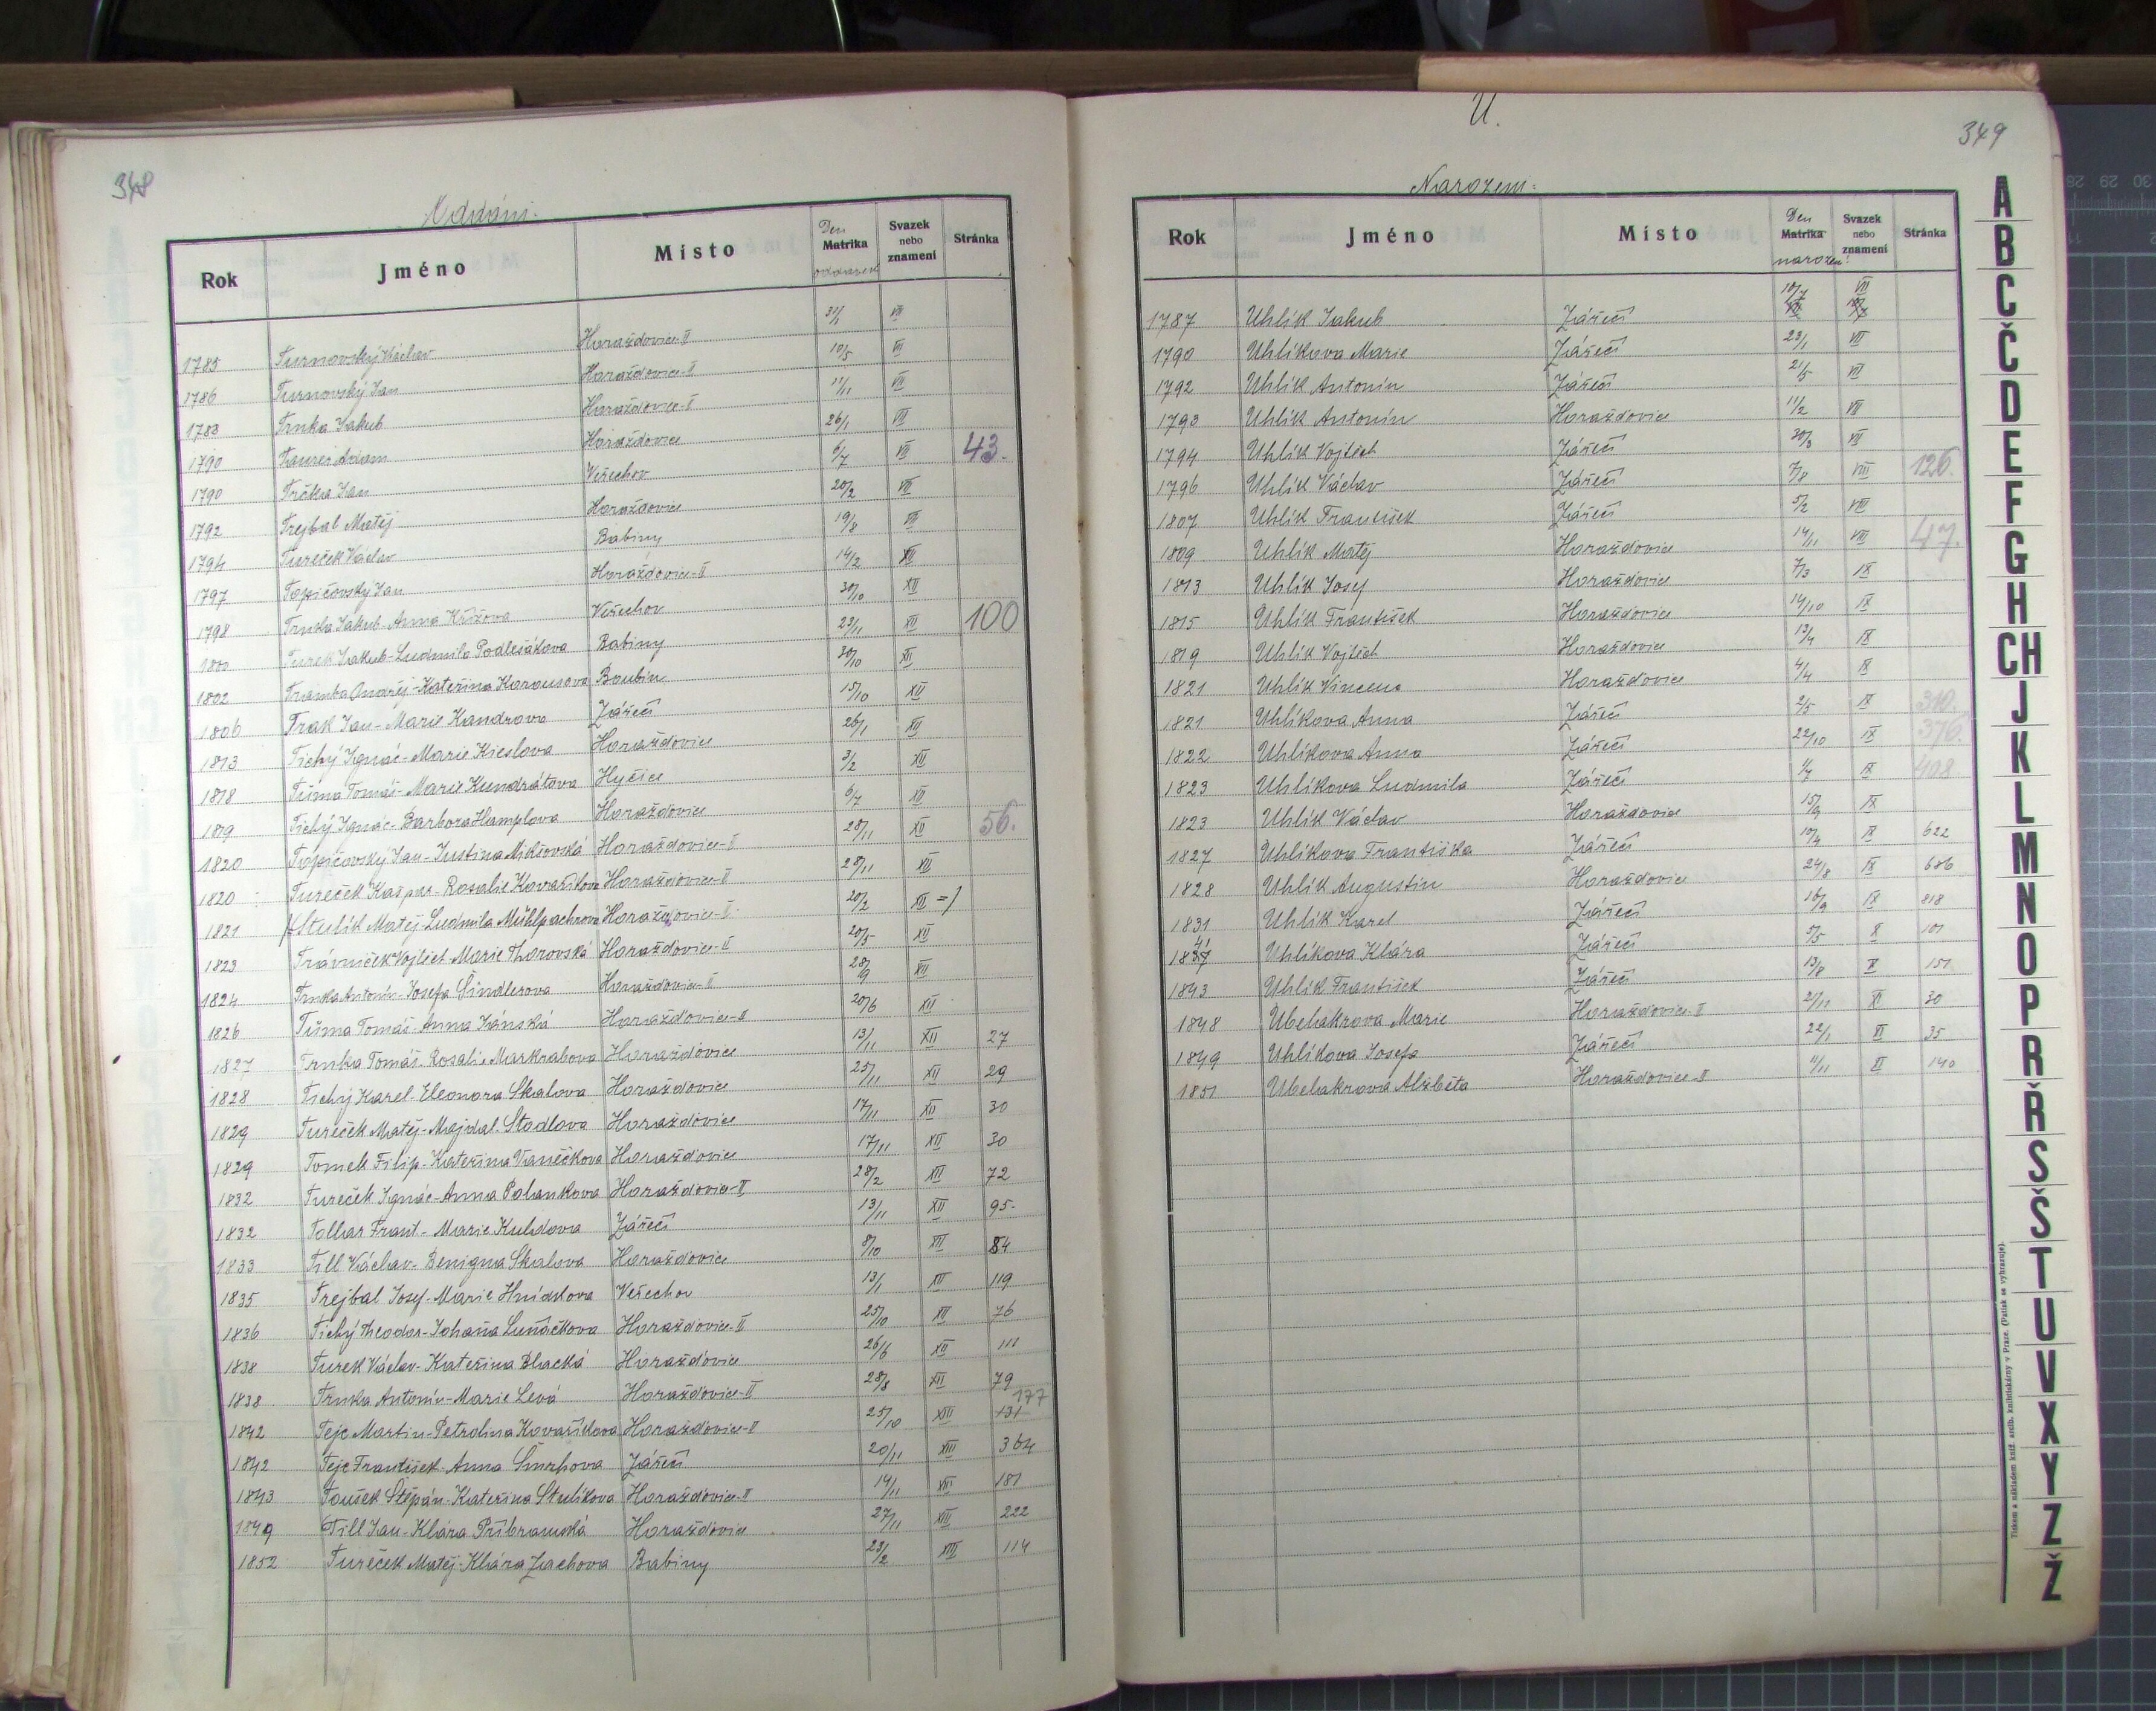 348
Oddáni:
Rok Jméno Místo Den Matrika oddavek Svazek nebo znamení Stránka
1785 Turnovský Václav Horažďovice-II 31/1 VII
1786 Turnovský Jan Horažďovice-II 10/5 VII
1783 Trnka Jakub Horažďovice-II 11/11 VII
1790 Adam Horažďovice 26/1 VII
1790 Trčka Jan Veřechov 6/7 VII 43.
1792 Trejbal Matěj Horažďovice 20/2 VII
1794 Tureček Václav Babiny 19/8 VII
1797 Topičovský Jan Horažďovice-II 14/2 XII
1798 Trnka Jakub-Anna Křížova Veřechov 30/10 XII
Turek Jakub-Ludmila Podlešákova Babiny 23/11 XII 100
1802 Tramba Ondřej-Kateřina Karausova Boubín 30/10 XII
1806 Trak Jan-Marie Kandrova Zářečí 15/10 XII
1813 Tichý Ignác-Marie Kieslova Horažďovice 26/1 XII
1818 Tůma Tomáš-Marie Kundrátova Hyčice 3/2 XII
1819 Tichý Ignác-Barbora Hamplova Horažďovice 6/7 XII
1820 Topičovský Jan-Justina Mikšovská Horažďovice-II 28/11 XII 56.
1820 Tureček Kašpar-Rosalie Kovaříkova Horažďovice-II 28/11 XII
1821 Stulík Matěj-Ludmila Mühlpachrova Horažďovice-II 20/2 XII =/
1823 Trávníček Vojtěch-Marie Thorovská Horažďovice-II 20/5 XII
1824 Trnka Antonín-Josefa Šindlerova Horažďovice-II 28/9 XII
1826 Tůma Tomáš-Anna Horažďovice-II 20/6 XII
1827 Trnka Tomáš-Rosalie Markrabova Horažďovice 13/11 XII 27
1828 Tichý Karel-Eleonora Skalova Horažďovice 25/11 XII 29
1829 Tureček Matěj-Majdal. Stadlova Horažďovice 17/11 XII 30
1829 Tomek Filip-Kateřina Vaněčkova Horažďovice 17/11 XII 30
1832 Tureček Ignác-Anna Polankova Horažďovice-II 28/2 XII 72
1832 Tollar Frant-Marie Kuhdova Zářečí 13/11 XII 95
1833 Till Václav-Benigna Skalova Horažďovice 8/10 XII 84
1835 Trejbal Josef-Marie Hnídkova Veřechov 13/1 XII 119
1836 Tichý Theodor-Johana Luňáčkova Horažďovice-II 25/10 XII 76
1838 Turek Václav-Kateřina Blacká Horažďovice 26/6 XII 111
1838 Trnka Antonín-Marie Levá Horažďovice-II 28/8 XII 79
1842 Tejc Martin-Petrolina Kovaříkova Horažďovice-II 25/10 XIII 131 177
1842 Tejc František-Anna Šmrhova Zářečí 20/11 XIII 364
1843 Toušek Štěpán-Kateřina Stulíkova Horažďovice-II 14/11 XIII 181
1849 Till Jan-Klára Příbramská Horažďovice 27/11 XIII 222
1852 Tureček Matěj-Klára Zachova Babiny 23/2 XIII 114
U.
349
Narození:
Rok Jméno Místo Den Matrika narození Svazek nebo znamení Stránka
1787 Uhlík Jakub Zářečí 10/7 VII
1790 Uhlíkova Marie Zářečí 23/1 VII
1792 Uhlík Antonín Zářečí 21/5 VII
1793 Uhlík Antonín Horažďovice 11/2 VII
1794 Uhlík Vojtěch Zářečí 30/3 VII
1796 Uhlík Václav Zářečí 7/8 VIII 126.
1807 Uhlík František Zářečí 5/2 VIII
1809 Uhlík Matěj Horažďovice 14/11 VIII 47.
1813 Uhlík Josef Horažďovice 7/3 IX
1815 Uhlík František Horažďovice 14/10 IX
1819 Uhlík Vojtěch Horažďovice 13/4 IX
1821 Uhlík Vincenc Horažďovice 4/4 IX
1821 Uhlíkova Anna Zářečí 2/5 IX 310.
1822 Uhlíkova Anna Zářečí 22/10 IX 376.
1823 Uhlíkova Ludmila Zářečí IX 408
1823 Uhlík Václav Horažďovice 15/9 IX
1827 Uhlíkova Františka Zářečí 10/4 IX 622
1828 Uhlík Augustin Horažďovice 24/8 IX 686
1831 Uhlík Karel Zářečí 10/9 IX 818
1837 41 Uhlíkova Klára Zářečí 5/5 X 101
1843 Uhlík František Zářečí 13/8 X 151
1848 Ubelakrova Marie Horažďovice-II 2/11 XI 30
1849 Uhlíkova Josefa Zářečí 22/1 XI 35
1851 Ubelakrova Alžběta Horažďovice-II 11/11 XI 140
A
B
C
Č
D
E
F
G
H
CH
J
K
L
M
N
O
P
R
Ř
S
Š
T
U
V
X
Y
Z
Ž